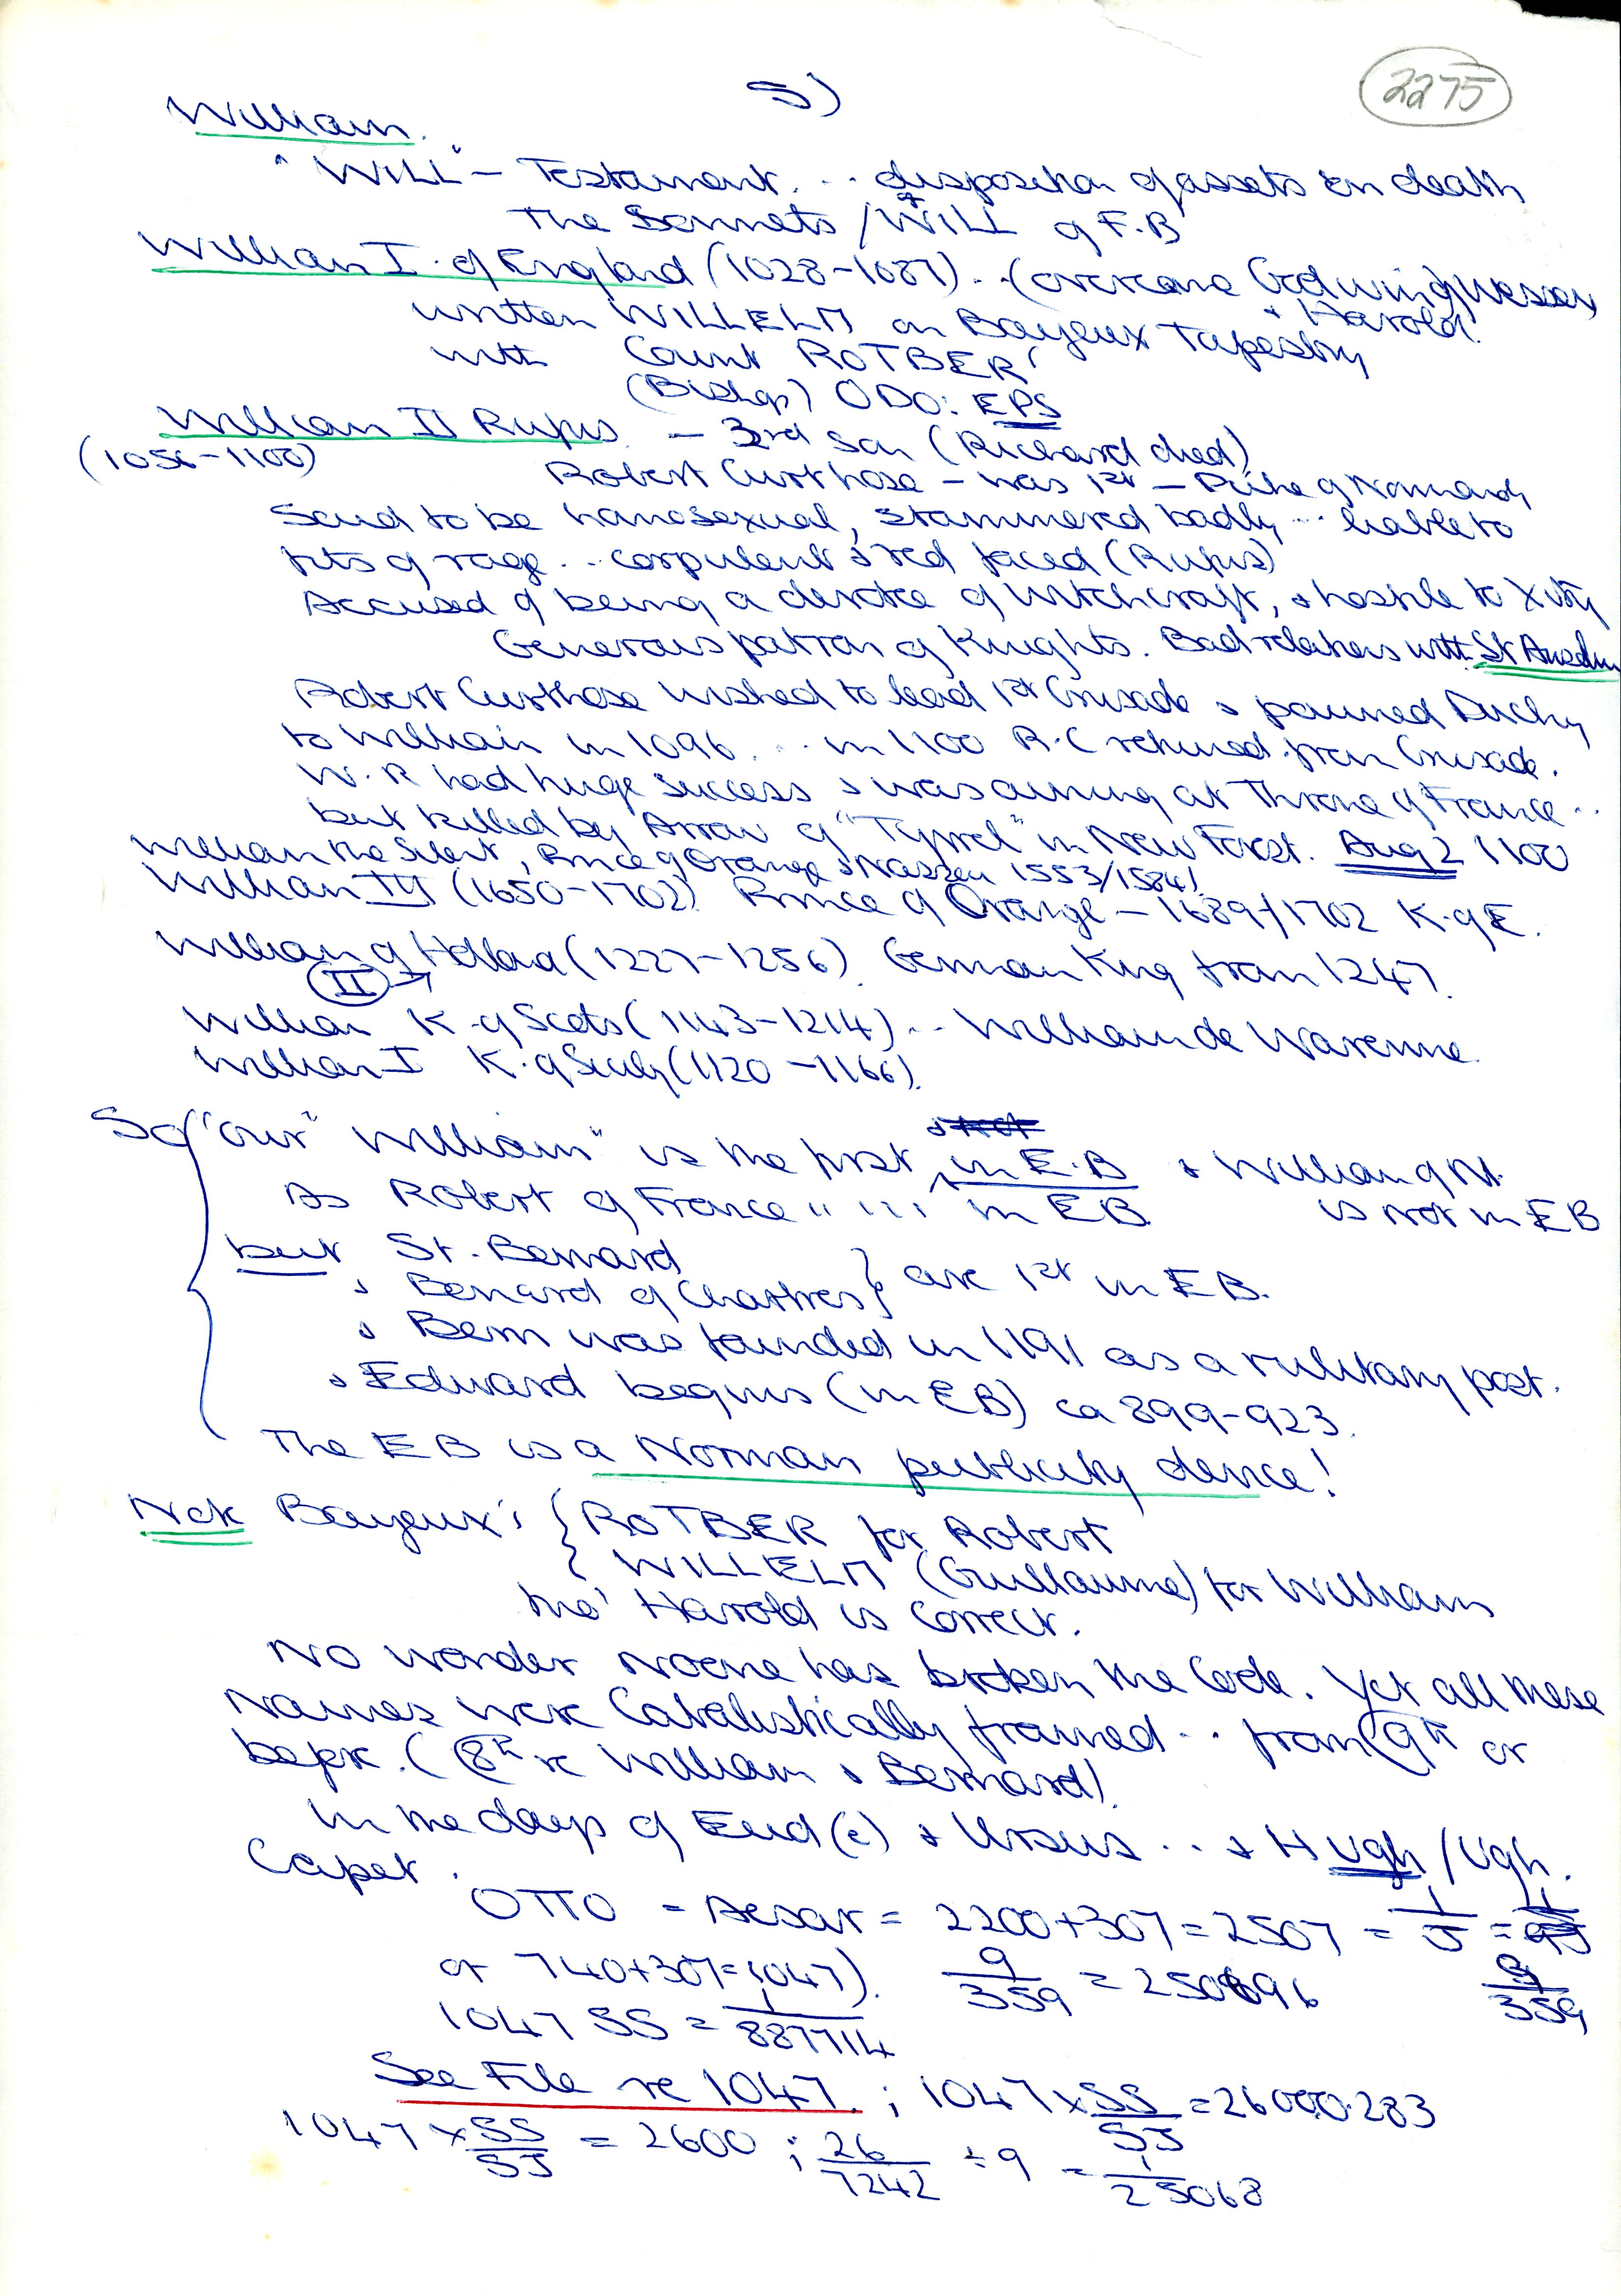 5)
2275
William.
"WILL" – Testament. .. disposition of assets on death
The Sonnets / WILL of F.B
William I. of England (1028-1087)... (overcame Godwin of Wessex
& Harold.
written WILLELM on Bayeux Tapestry
with Count ROTBER'
(Bishop) ODO: EPS
William II Rufus – 3rd son (Richard died)
(1056-1100)
Robert Curthose – was 1st – Duke of Normandy
Said to be homosexual, stammered badly ... liable to
fits of rage... corpulent & red faced (Rufus)
Accused of being a devotee of witchcraft, & hostile to Xity
Generous patron of Knights. Bad relations with St Anselm
Robert Curthose wished to lead 1st Crusade & pawned Duchy
to William in 1096. ... in 1100 R.C returned from Crusade.
W.R had huge success & was aiming at Throne of France ..
but killed by Arrow of "Tyrrel" in New Forest. Aug 2 1100
William the Silent, Prince of Orange & Nassau 1553/1584!
William III (1650-1702) Prince of Orange – 1689/1702 K. of E.
William of Holland (1227-1256) German King from 1247.
II →
William K. of Scots (1143-1214)... William de Warenne.
William I K. of Sicily (1120-1166).
So "our" William" is the first in E.B & William of M.
is not in EB
As Robert of France " " " in EB
but St. Bernard
& Bernard of Chartres } are 1st in EB.
& Bern was founded in 1191 as a military post.
& Edward begins (in EB) ca 899-923.
The EB is a Norman publicity device!
Note Bayeux's { ROTBER for Robert
WILLELM (Guillaume) for William
tho' Harold is correct.
No wonder Noone has broken the Code. Yet all these
Names were Cabalistically framed .. from 9th or
before. (8th re William & Bernard)!
In the days of Eud(e) & Ursus ... & Hugh / Ugh.
Capet.
OTTO = Aesar = 2200+307=2507 = 1/J =
or 740+307=1047). 9/359 = 250696 9/359
1047 SS = 1/887714
See File re 1047. ; 1047 x SS/SJ = 26000.283
1047 x SS/SJ = 2600 ; 26/7242 ÷ 9 = 1/25068